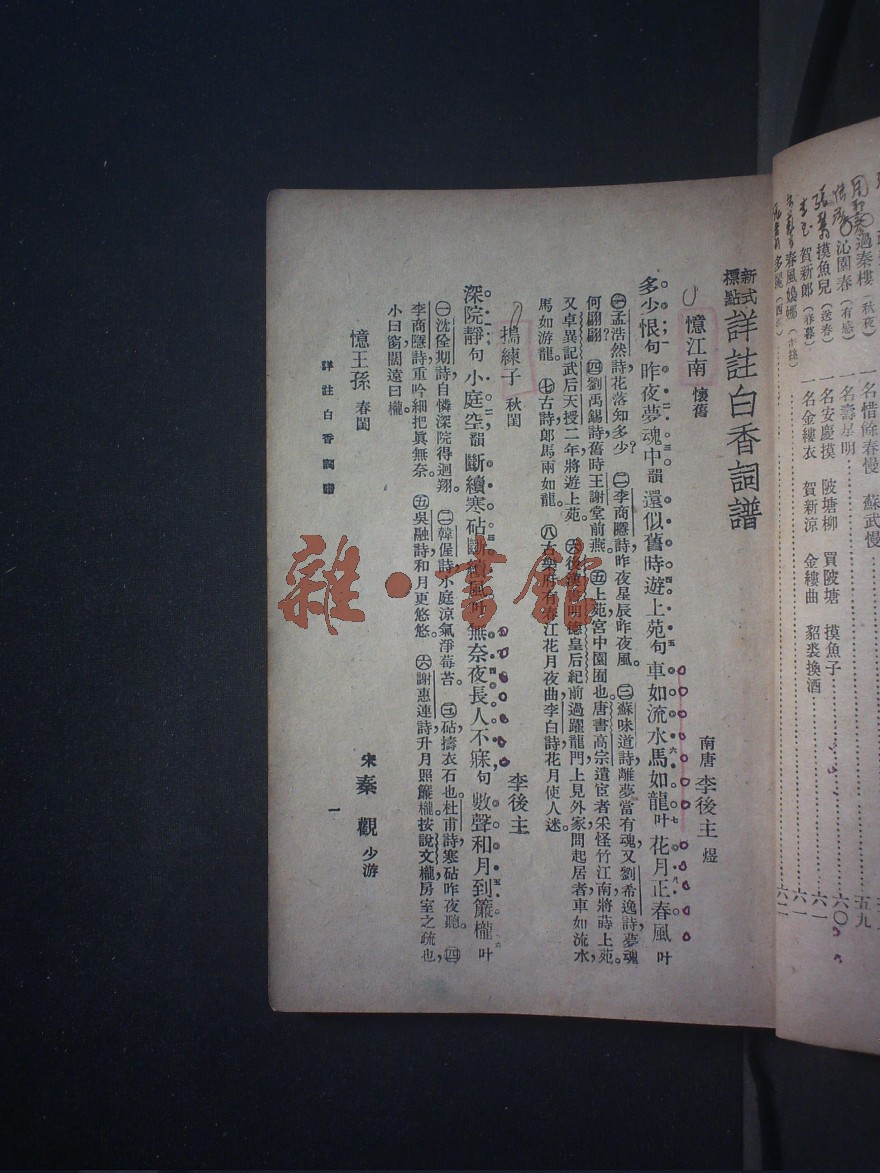 過秦樓（秋夜）一名惜餘春慢　蘇武慢
沁園春（有感）一名壽星明
摸魚兒（送春）一名安慶摸　陂塘柳　買陂塘　摸魚子
賀新郎（春暮）一名金縷衣　賀新涼　金縷曲　貂裘換酒
春風嬝娜
多麗
五九
六〇
六一
六一
六二
新式標點詳註白香詞譜
憶江南　懷舊　南唐　李後主　煜
多少恨句　昨夜夢魂中韻　還似舊時遊上苑句　車如流水馬如龍叶　花月正春風叶
㊀孟浩然詩花落知多少　㊁李商隱詩昨夜星辰昨夜風。㊂蘇味道詩離夢當有魂又劉希逸詩夢魂
何翩翩？㊃劉禹錫詩舊時王謝堂前燕。㊄上苑宮中園囿也唐書高宗遣宦者采怪竹江南將蒔上苑。
又卓異記武后天授二年將遊上苑。㊅後漢書明德皇后紀前過躍龍門上見外家問起居者車如流水
馬如游龍。㊆古詩郎馬兩如龍。㊇古樂府有春江花月夜曲李白詩花月使人迷。
搗練子　秋閨　李後主
深院靜句　小庭空韻　斷續寒砧斷續風叶　無奈夜長人不寐句　數聲和月到簾櫳叶
㊀沈佺期詩自憐深院得迴翔。㊁韓偓詩小庭涼氣淨莓苔。㊂砧擣衣石也。杜甫詩寒砧昨夜聽。㊃
李商隱詩重吟細把眞無奈。㊄吳融詩和月更悠悠。㊅謝惠連詩升月照簾櫳。按說文櫳房室之疏也，
小曰窗闊遠曰櫳。
憶王孫　春閨　宋　秦觀　少游
詳註白香詞譜　一
雜·書館